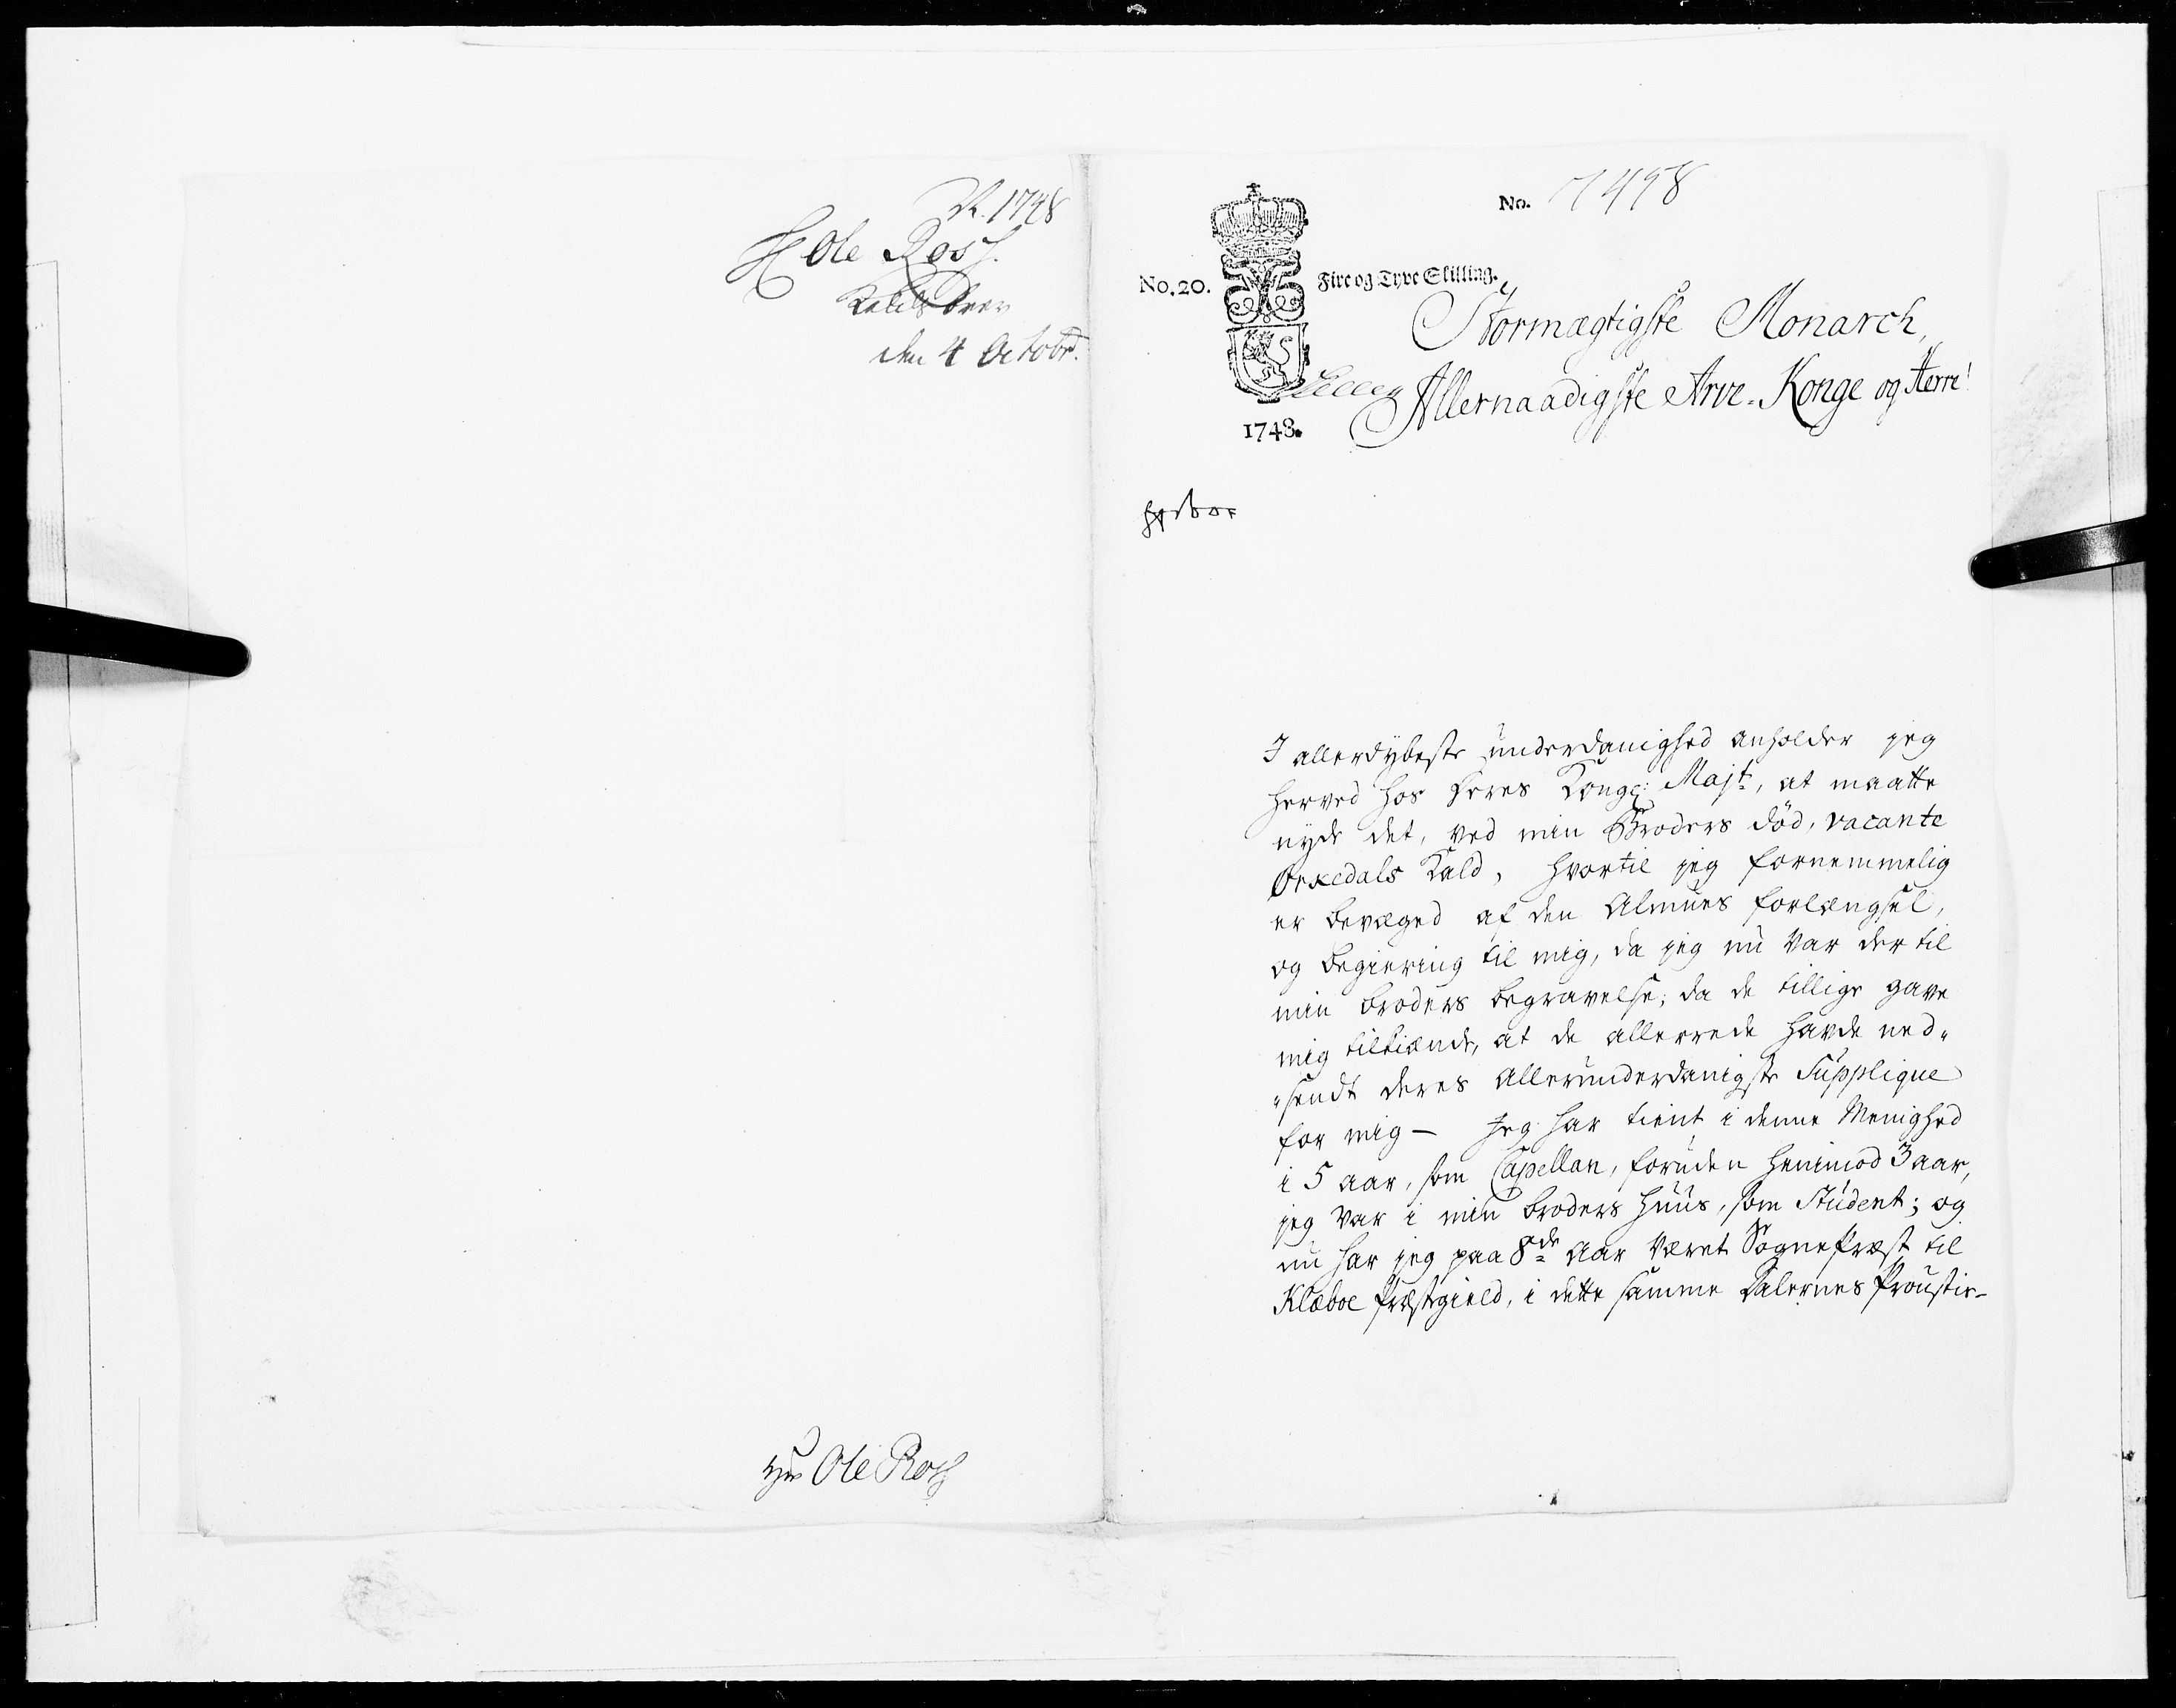 1748
H Ole Rosh.
Kalds brev
den 4 Octobr.
Hr Ole Rosh
No. 1498
No. 20.
Fire og Tyve Skilling.
1748.
Stormægtigste Monarch,
Allernaadigste Arve-Konge og Herre!
I allerdybeste underdanighed anholder jeg
herved hos Deres Kongel: Majt, at maatte
nyde det, ved min Broders død, vacante
Orkedals Kald, hvortil jeg fornemmelig
er bevæged af den Almues forlængsel,
og begiering til mig, da jeg nu var der til
min broders begravelse; da de tillige gave
mig tilkiænde, at de allerrede havde ned-
-sendt deres Allerunderdanigste Supplique
for mig – Jeg har tient i denne Menighed
i 5 aar, som Capellan, foruden henimod 3 aar,
jeg var i min broders huus, som Student; og
nu har jeg paa 8de aar været Sognepræst til
Klæboe Præstegield, i dette samme Dalernes Proustie-